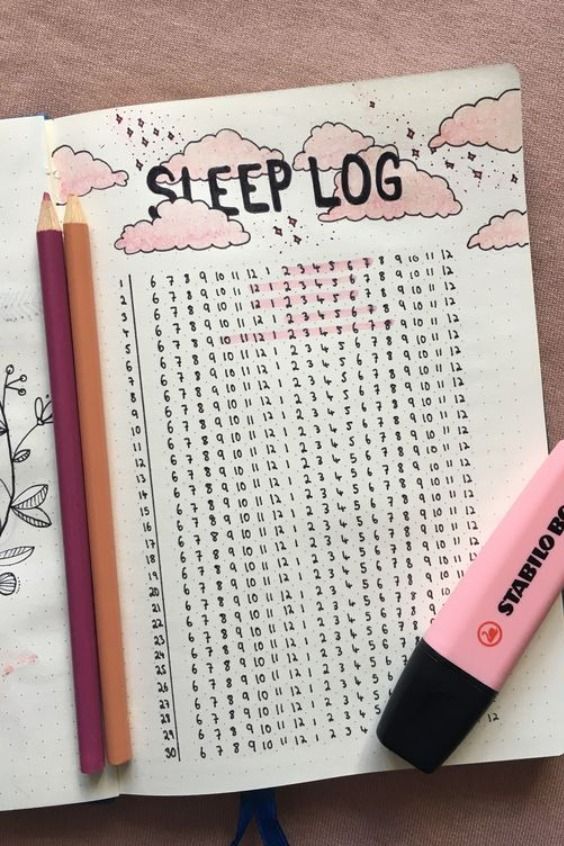 SLEEP LOG
1 6 7 8 9 10 11 12 1 2 3 4 5 6 7 8 9 10 11 12
2 6 7 8 9 10 11 12 1 2 3 4 5 6 7 8 9 10 11 12
3 6 7 8 9 10 11 12 1 2 3 4 5 6 7 8 9 10 11 12
4 6 7 8 9 10 11 12 1 2 3 4 5 6 7 8 9 10 11 12
5 6 7 8 9 10 11 12 1 2 3 4 5 6 7 8 9 10 11 12
6 6 7 8 9 10 11 12 1 2 3 4 5 6 7 8 9 10 11 12
7 6 7 8 9 10 11 12 1 2 3 4 5 6 7 8 9 10 11 12
8 6 7 8 9 10 11 12 1 2 3 4 5 6 7 8 9 10 11 12
9 6 7 8 9 10 11 12 1 2 3 4 5 6 7 8 9 10 11 12
10 6 7 8 9 10 11 12 1 2 3 4 5 6 7 8 9 10 11 12
11 6 7 8 9 10 11 12 1 2 3 4 5 6 7 8 9 10 11 12
12 6 7 8 9 10 11 12 1 2 3 4 5 6 7 8 9 10 11 12
13 6 7 8 9 10 11 12 1 2 3 4 5 6 7 8 9 10 11 12
14 6 7 8 9 10 11 12 1 2 3 4 5 6 7 8 9 10 11 12
15 6 7 8 9 10 11 12 1 2 3 4 5 6 7 8 9 10 11 12
16 6 7 8 9 10 11 12 1 2 3 4 5 6 7 8 9 10 11 12
17 6 7 8 9 10 11 12 1 2 3 4 5 6 7 8 9 10 11 12
18 6 7 8 9 10 11 12 1 2 3 4 5 6 7 8 9 10 11 12
19 6 7 8 9 10 11 12 1 2 3 4 5 6 7 8 9 10 11 12
20 6 7 8 9 10 11 12 1 2 3 4 5 6 7 8 9 10 11 12
21 6 7 8 9 10 11 12 1 2 3 4 5 6 7 8 9 10 11
22 6 7 8 9 10 11 12 1 2 3 4 5 6 7 8 9 10
23 6 7 8 9 10 11 12 1 2 3 4 5 6 7 8 9
24 6 7 8 9 10 11 12 1 2 3 4 5 6 7 8
25 6 7 8 9 10 11 12 1 2 3 4 5 6 7 8
26 6 7 8 9 10 11 12 1 2 3 4 5 6 7
27 6 7 8 9 10 11 12 1 2 3 4 5 6
28 6 7 8 9 10 11 12 1 2 3 4 5
29 6 7 8 9 10 11 12 1 2 3 4 5
30 6 7 8 9 10 11 12 1 2 3 4 12
STABILO BO